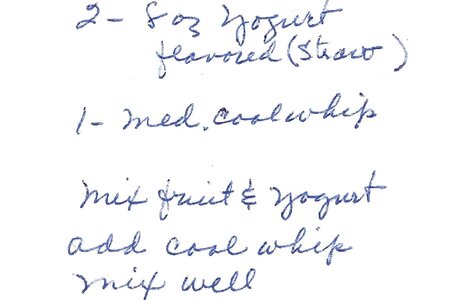 2- 8 oz Yogurt
flavored (Straw)
1- med. cool whip
mix fruit & yogurt
add cool whip
mix well